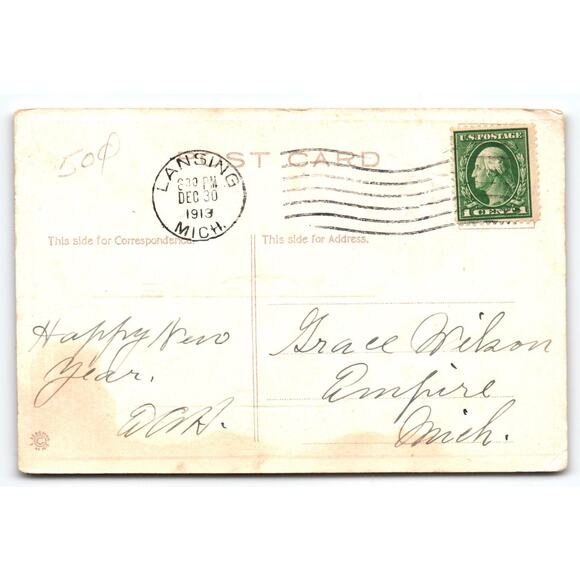 50¢
POST CARD
LANSING
8 30 PM
DEC 30
1913
MICH.
U.S. POSTAGE
1 CENT 1
This side for Correspondence.
This side for Address.
Happy New
Year.
Grace Wilson
Empire
Mich.